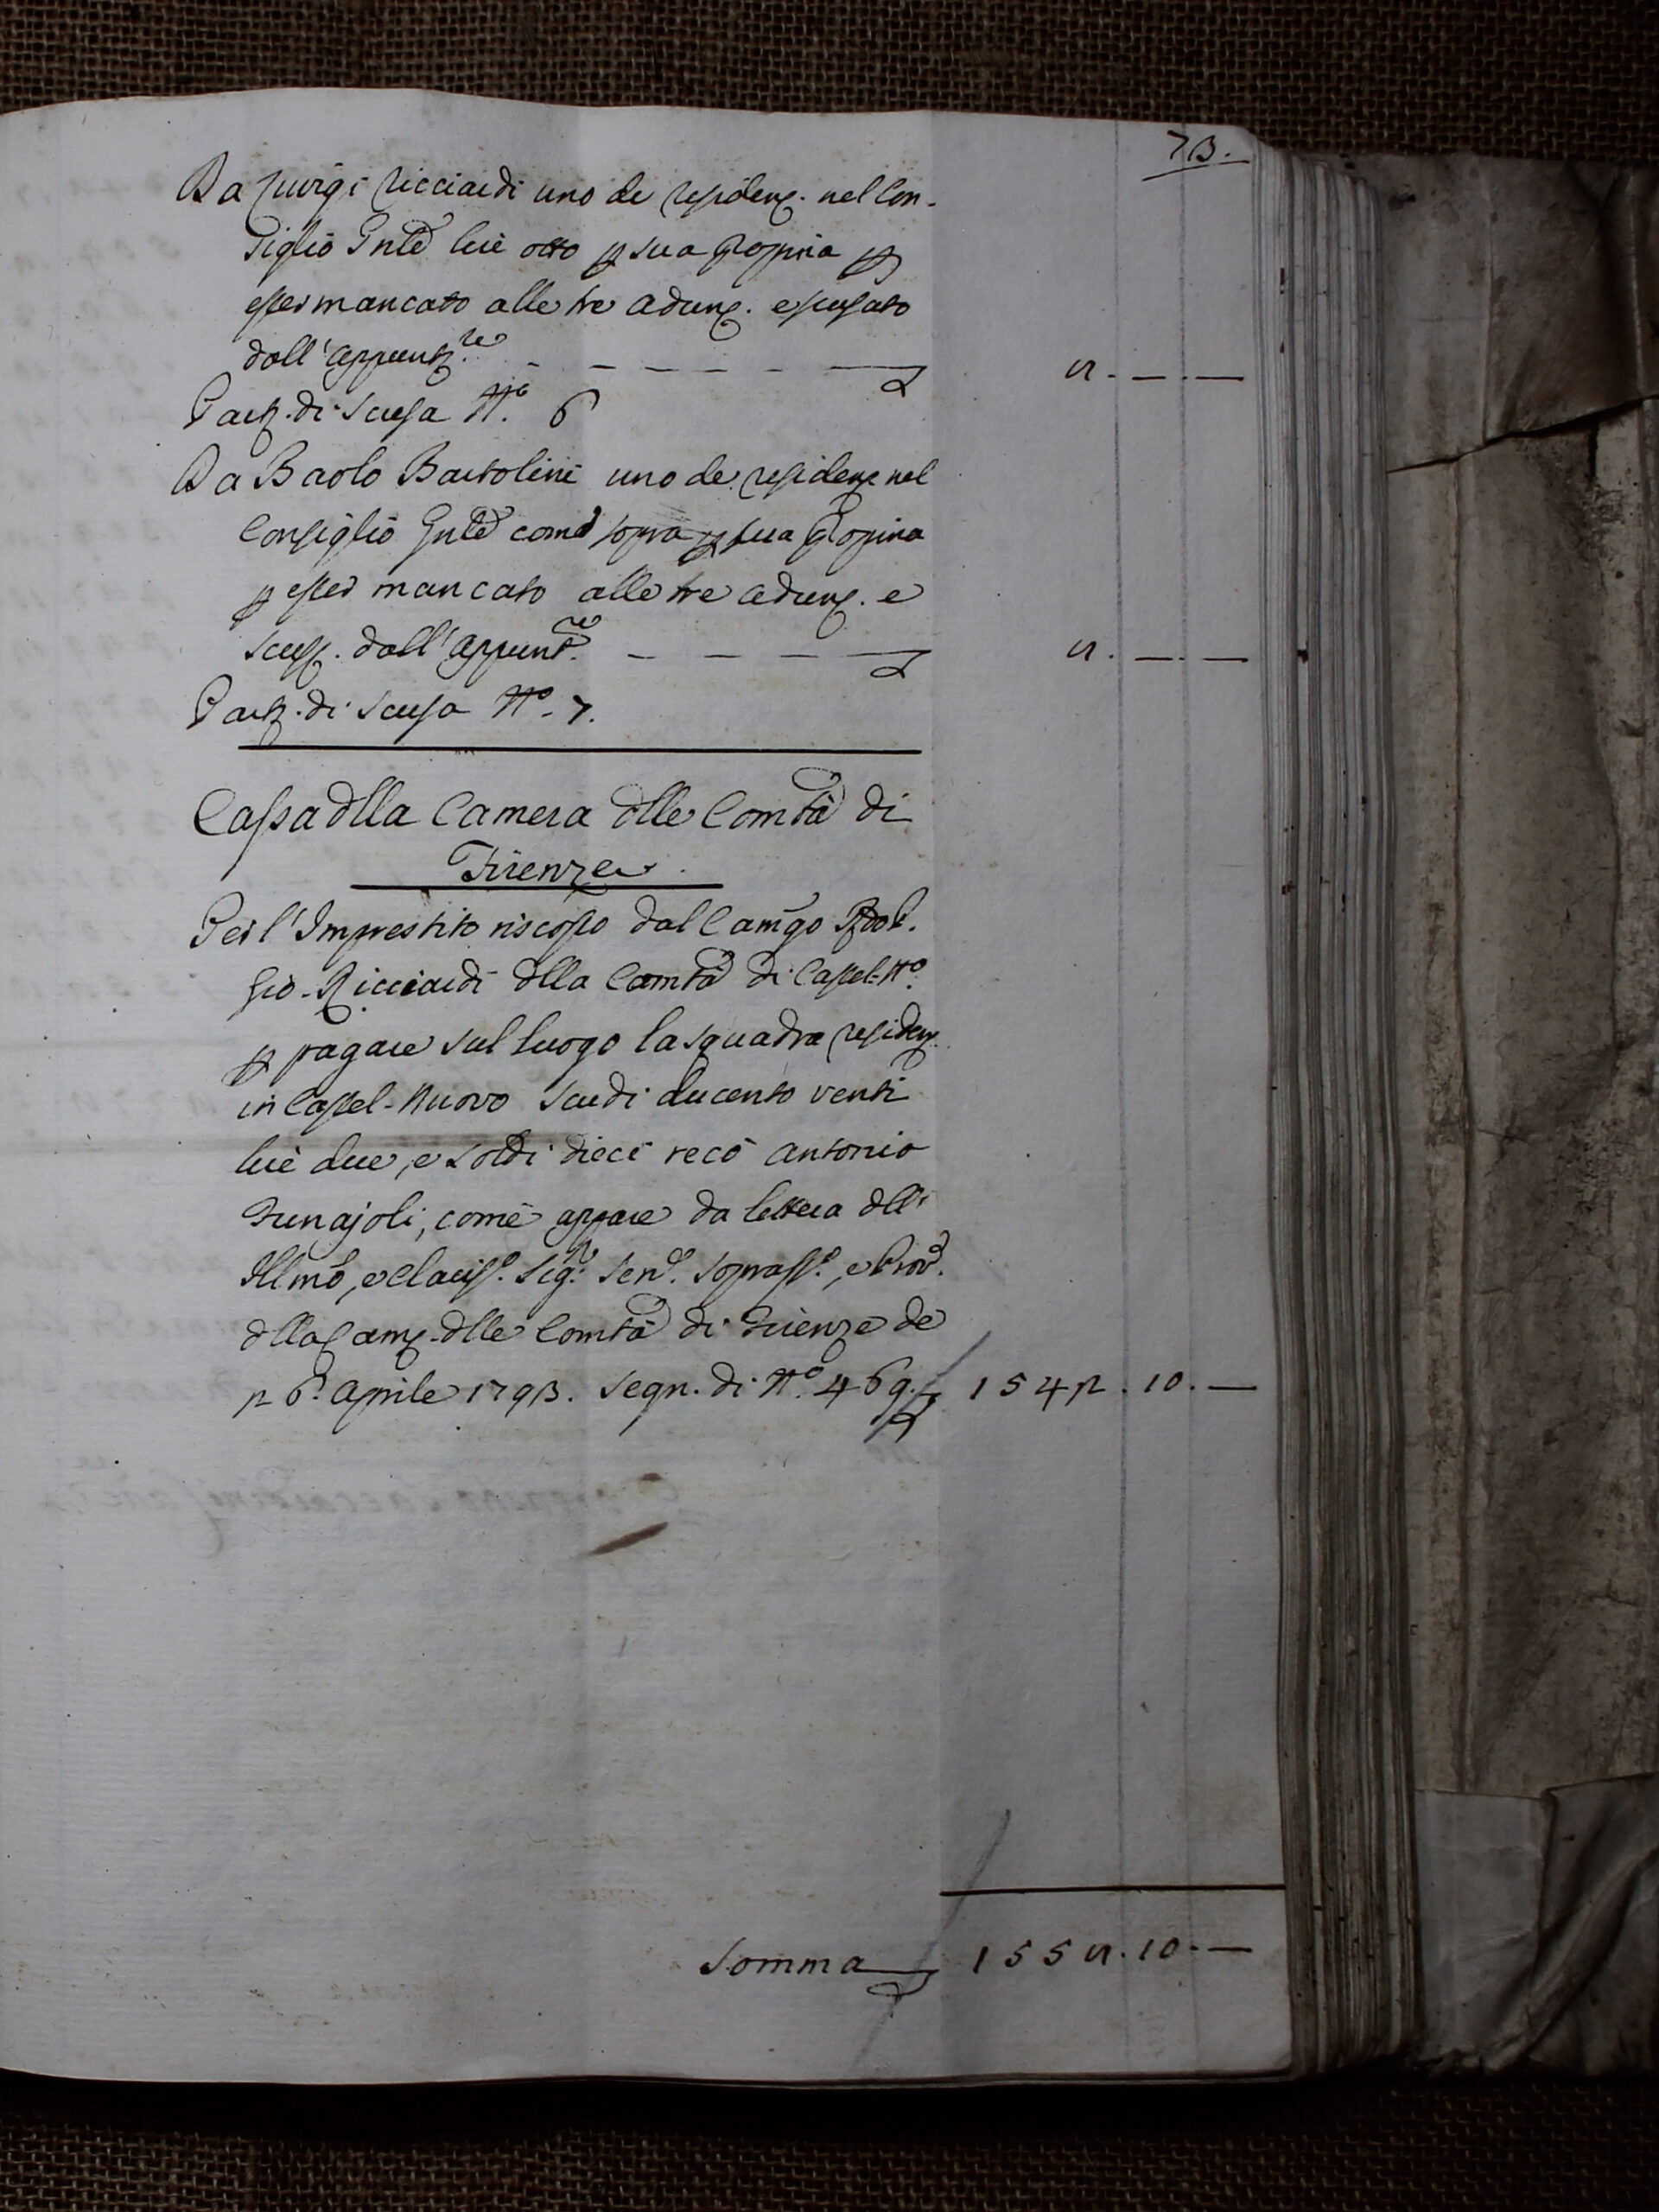 73.
Da Luigi Ricciardi uno de residenz. nel Con-
siglio Gnle lire otto p sua Propina p
esser mancato alle tre adunz. e scusato
dall'Appuntre
8. — . —
Partz. di Scusa No. 6
Da Paolo Bartolini uno de residenz nel
Consiglio Gnle come sopra p sua Propina
p esser mancato alle tre adunz. e
scus. dall'Appuntre
8. — . —
Partz. di Scusa No. 7.
Cassa dlla Camera dlle Comtà di
Firenze
Per l'Imprestito riscosso dal Camgo
Gio. Ricciardi dlla Comtà di Castel-No.
p pagare sul luogo la squadra residenz.
in Castel-Nuovo Scudi ducento venti
lire due, e soldi dieci recò Antonio
Funajoli, come appare da lettera dll'
Illmo, e Clariss.o Sig.re Sen.e Soprass.o, e Prov.e
dlla Camz. dlle Comtà di Firenze de
26. Aprile 1793. Segn. di No. 469.
1542. 10. —
Somma 1558. 10. —